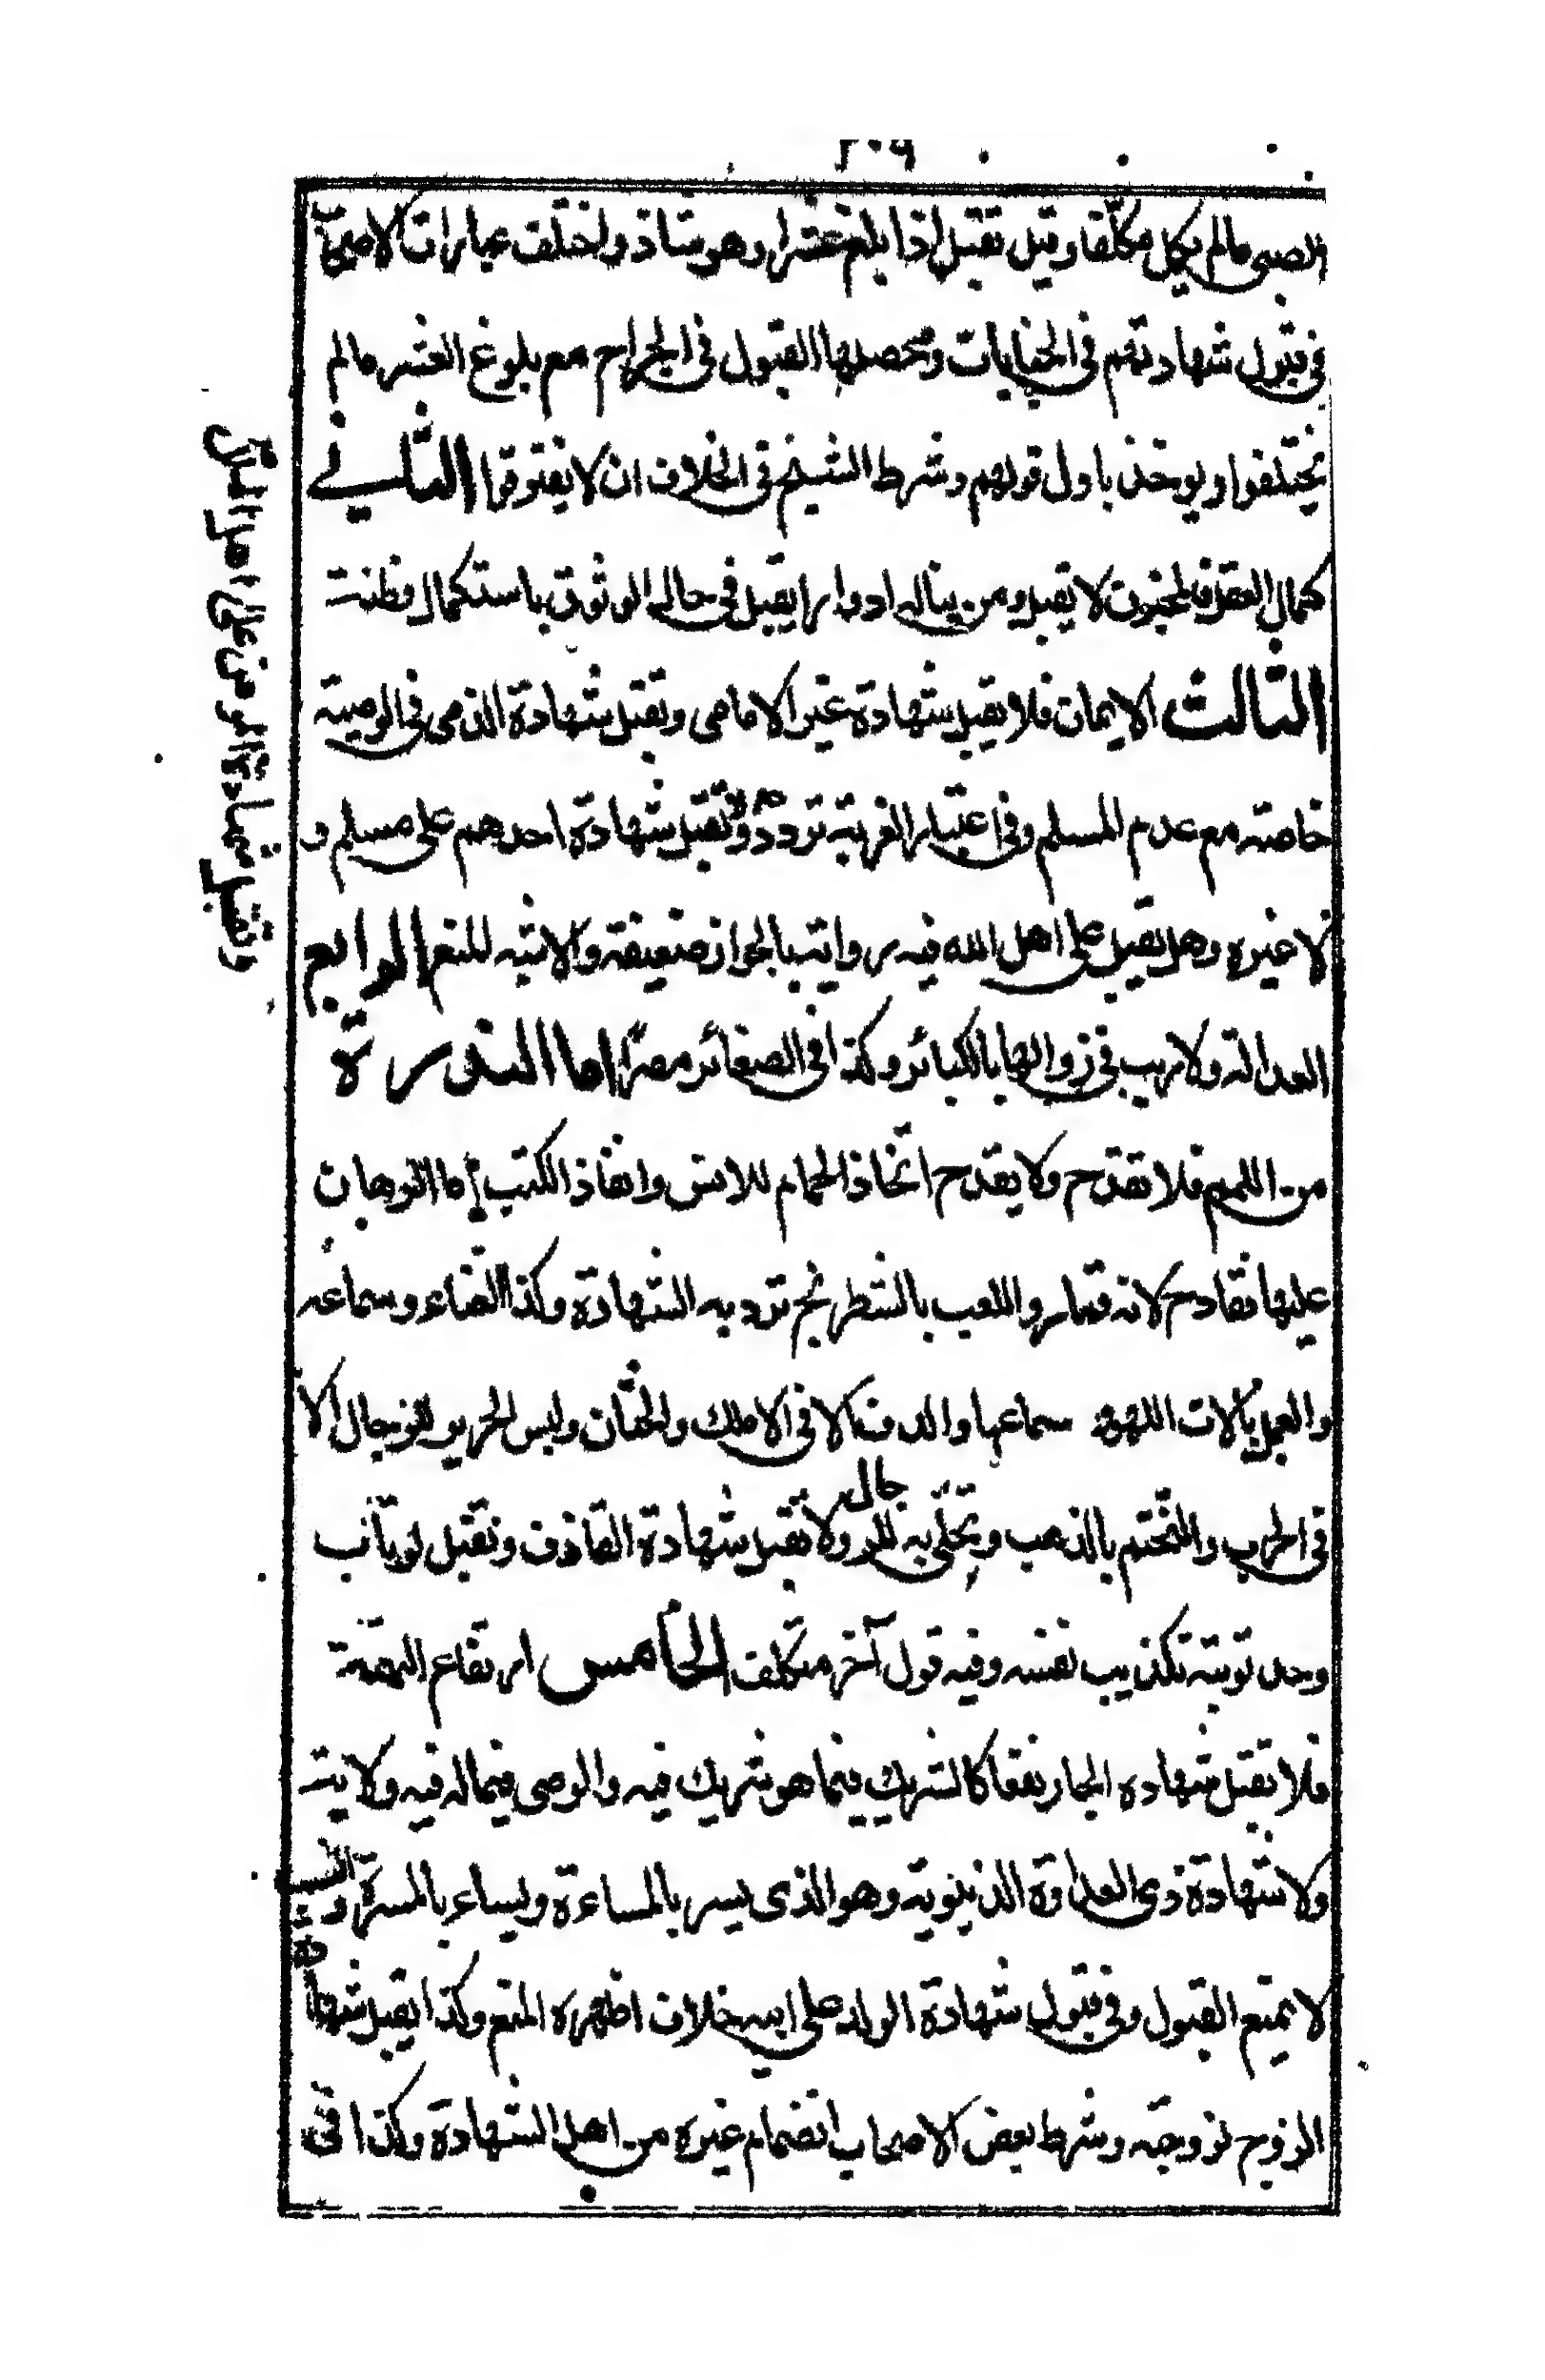 ٢٠٩
الصبى مالم يكل مكلفا وقيل تقبل اذا بلغ عشرا وهو شاذ واختلف عبارات الاصحاب
فى قبول شهادتهم فى الجنايات ومحصلها القبول فى الجراح مع بلوغ العشر مالم
يختلفوا ويوخذ باول قولهم وشرط الشيخ فى الخلاف ان لا يفترقوا الثانے
كمال العقل فالمجنون لا تقبل ومن يناله ادوارا يقبل فى حال الوثوق باستكمال فطنته
الثالث الايمان فلا يقبل شهادة غير الامامى وتقبل شهادة الذمى فى الوصية
خاصة مع عدم المسلم وفى اعتبار الغربة تردد ولا تقبل شهادة احدهم على مسلم و
لا غيره وهل يقبل على اهل الملة فيه رواية بالجواز ضعيفة والاشبه المنع الرابع
العدالة ولا ريب فى زوالها بالكبائر وكذا فى الصغائر مصرا اما الندرة
من اللمم فلا تقدح ولا يقدح اتخاذ الحمام للانس وانفاذ الكتب اما الرهان
عليها فقادح لانه قمار واللعب بالشطرنج ترد به الشهادة وكذا الغناء وسماعه
والعمل بالات اللهو سماعها والدف الا فى الاملاك والختان ولبس الحرير للرجال الا
فى الحرب والتختم بالذهب وتحلى به للرجال ولا تقبل شهادة القاذف وتقبل لو تاب
وحد توبته تكذيب نفسه وفيه قول آخر متكلف الخامس ارتفاع التهمة
فلا تقبل شهاده الجار نفعا كالشريك فيما هو شريك فيه والوصى فيما له فيه ولاية
ولا شهادة ذى العداوة الدنيوية وهو الذى يسر بالمساءة ويساء بالمسرة والنسب
لا يمنع القبول وفى قبول شهادة الولد على ابيه خلاف اظهره المنع وكذا يقبل شهادة
الزوج لزوجته وشرط بعض الاصحاب انضمام غيره من اهل الشهادة وكذا فى
وتقبل شهادة المومن على اهل الملل